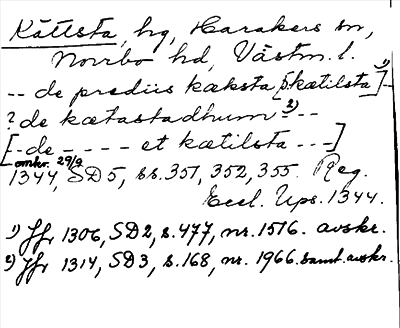 Kättsta, hg, Harakers sn,
Norrbo hd, Västm. l.
-- de prediis kæksta [å. kætilsta]¹⁾ -
? de kætastadhum²⁾ --
[- de - - - - et kætilsta ---]
omkr. 29/9
1344, SD 5, ss. 351, 352, 355. Reg.
Eccl. Ups. 1344.
¹⁾ Jfr 1306, SD 2, s. 477, nr. 1516. avskr.
²⁾ Jfr 1314, SD 3, s. 168, nr. 1966. samt. avskr.